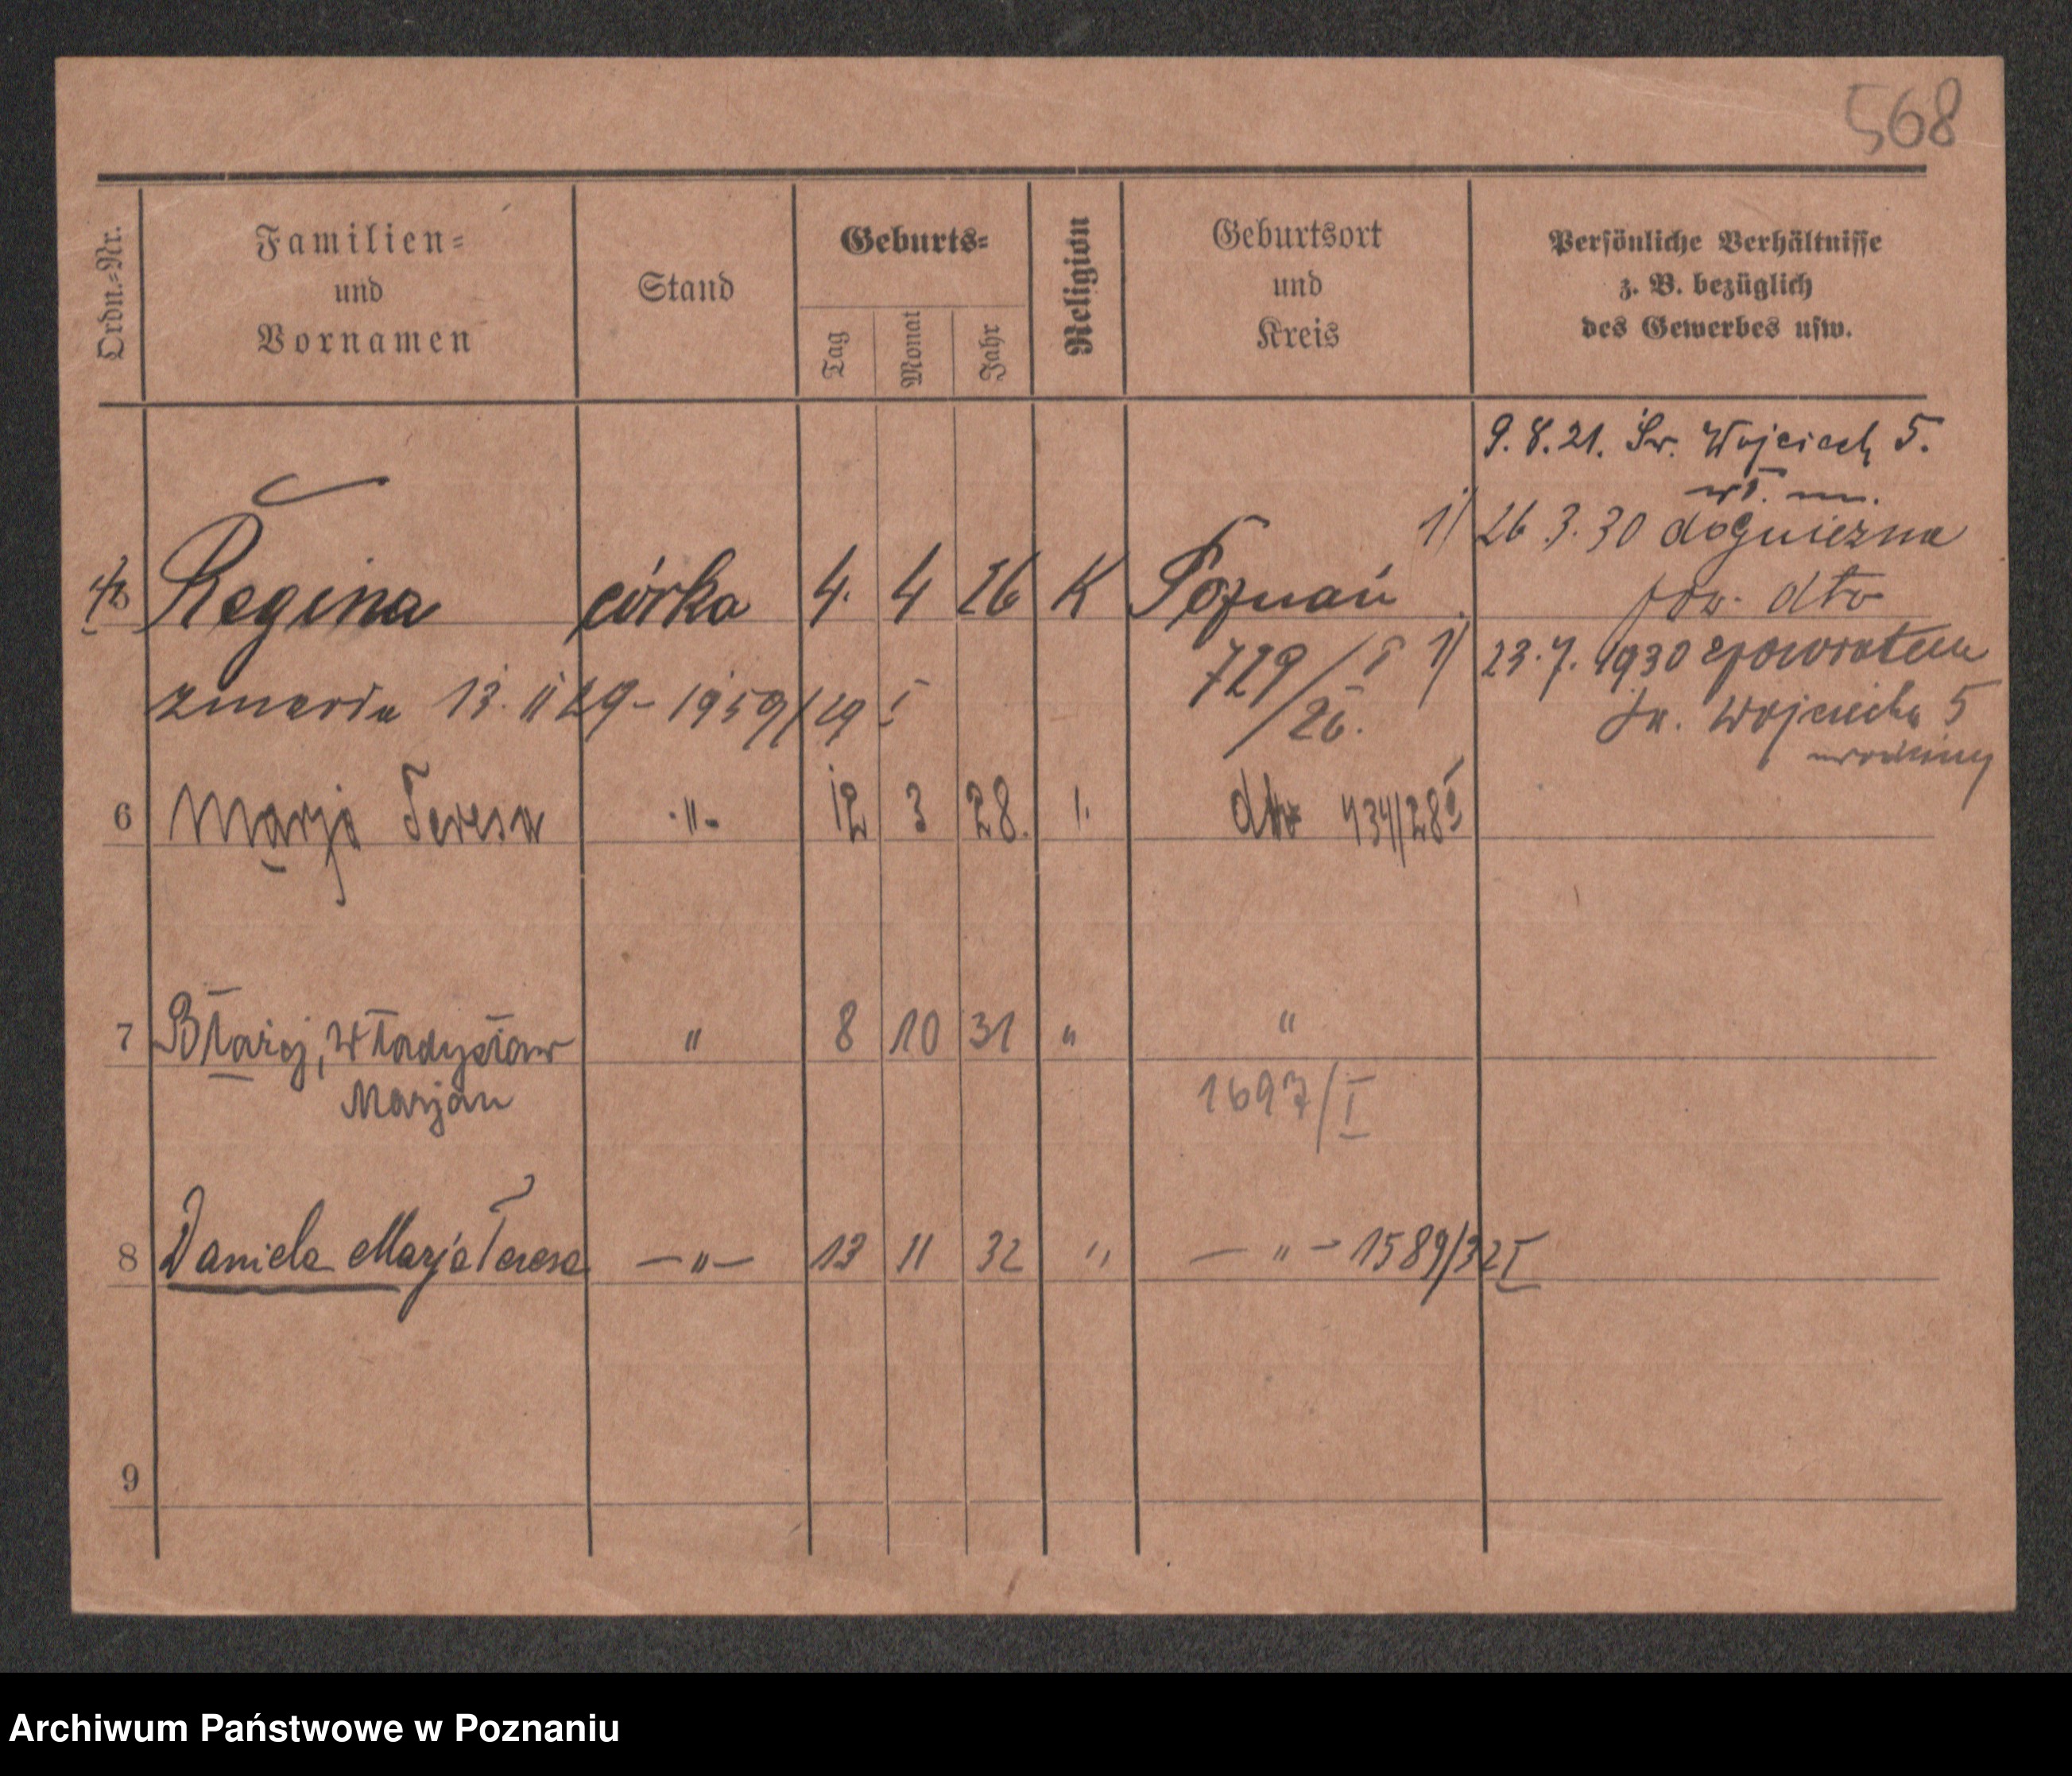 568
Ordn.-Nr.
Familien-
und
Vornamen
Stand
Geburts-
Tag
Monat
Jahr
Religion
Geburtsort
und
Kreis
Persönliche Verhältnisse
z. B. bezüglich
des Gewerbes usw.
9.8.21. Św. Wojciech 5.
1) 26 3.30 do Gniezna
pow. dto
Regina córka 4. 4 26 K Poznań
729/I 26.
1) 23.7. 1930 z powrotem
św. Wojciecha 5
zmarła 13. II 29 - 1959/29 I
6 Marja Teresa -"- 12 3 28. dto 434/28 I
7 Błażej, Władysław " 8 10 31 " "
Marjan
1697/I
8 Daniela Marja Teresa -"- 13 11 32 " -"- 1589/32 I
9
Archiwum Państwowe w Poznaniu